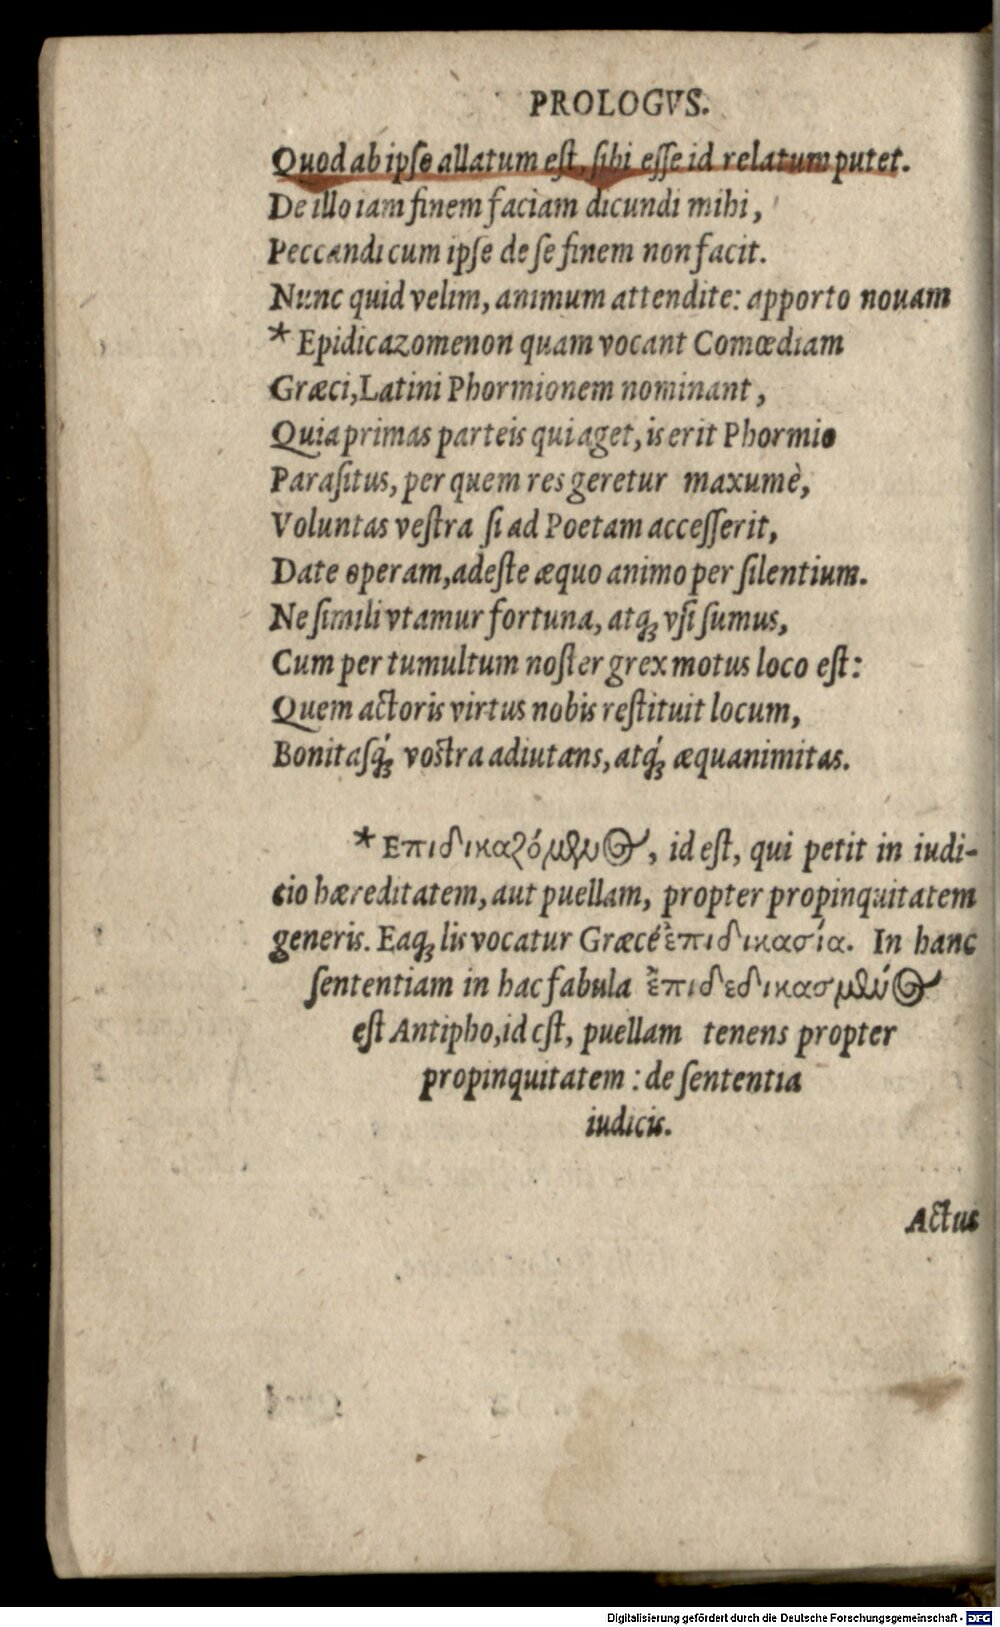 PROLOGVS.
Quod ab ipso allatum est, sibi esse id relatum putet.
De illo iam finem faciam dicundi mihi,
Peccandi cum ipse de se finem non facit.
Nunc quid velim, animum attendite: apporto nouam
* Epidicazomenon quam vocant Comœdiam
Græci, Latini Phormionem nominant,
Quia primas parteis qui aget, is erit Phormio
Parasitus, per quem res geretur maxumè,
Voluntas vestra si ad Poetam accesserit,
Date operam, adeste æquo animo per silentium.
Ne simili vtamur fortuna, atq; vsi sumus,
Cum per tumultum noster grex motus loco est:
Quem actoris virtus nobis restituit locum,
Bonitasq́; vostra adiutans, atq́; æquanimitas.
* Επιδικαζόμενος, id est, qui petit in iudi-
cio hæreditatem, aut puellam, propter propinquitatem
generis. Eaq; lis vocatur Græcé ἐπιδικασία. In hanc
sententiam in hac fabula ἐπιδεδικασμένος
est Antipho, id est, puellam tenens propter
propinquitatem : de sententia
iudicis.
Actus
Digitalisierung gefördert durch die Deutsche Forschungsgemeinschaft - DFG